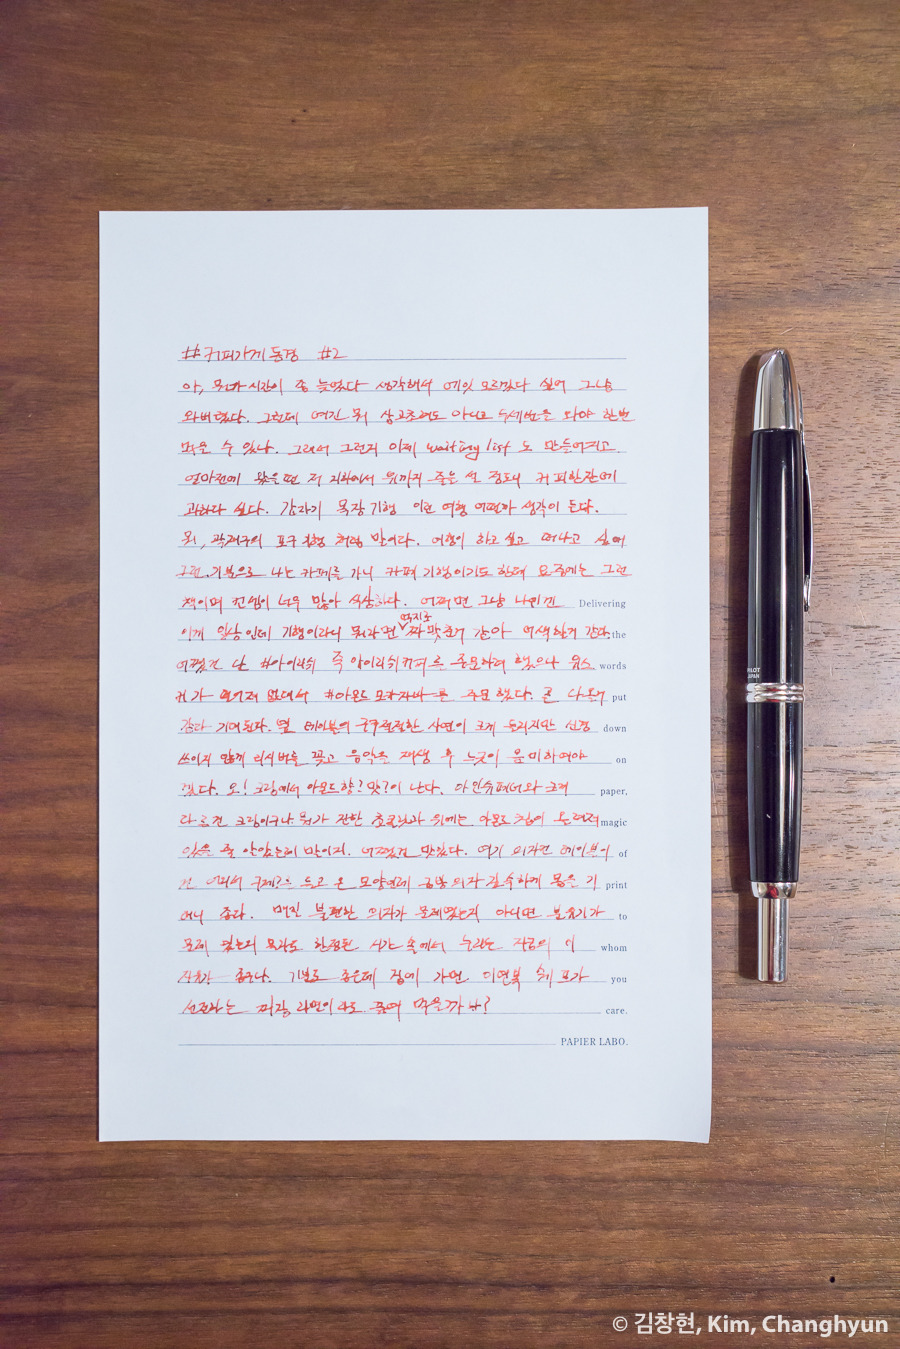 #커피가게 동경 #2
아, 뭐가 시간이 좀 늦었다 생각해서 에잇 모르겠다 싶어 그냥
와버렸다. 그런데 여긴 뭐 삼고초려도 아니고 두세번을 와야 한번
먹을 수 있나. 그래서 그런지 이제 waiting list 도 만들어지고
얼마전에 왔을땐 저 지하에서 위까지 줄을 설 정도니 커피한잔에
과하다 싶다. 갑자기 목장 기행 이란 여행 어떨까 생각이 든다.
뭐, 곽재구의 포구기행 처럼 말이다. 여행이 하고 싶고 떠나고 싶어
그런 기분으로 나는 카페를 가니 카페 기행이기도 한데 요즘에는 그런
책이며 컨셉이 너무 많아 식상하다. 어쩌면 그냥 나에겐 Delivering
이게 일상인데 기행이라니 뭐라면 억지로 짜 맞춘거 같아 어색한거 같다. the
어쨌건 난 #아이리쉬 즉 아이리쉬커피를 주문하려 했으나 위스 words
키가 떨어져 없대서 #아몬드모카자바 를 주문했다. 곧 나올거 put
같다 기대된다. 옆 테이블의 구구절절한 사연이 크게 들리지만 신경 down
쓰이지 않게 리시버를 꽂고 음악을 재생 후 느긋이 음미하여야 on
겠다. 오! 크림에서 아몬드향? 맛?이 난다. 아인슈페너와 그저 paper,
다를건 크림이구나 뭐가 진한 초콜릿과 위에는 아몬드 칩이 올려져 magic
있을 줄 알았는데 말이지. 어쨌건 맛있다. 여기 의자건 테이블이 of
건 어디서 구제?로 들고 온 모양인데 공방의자 깊숙하게 몸을 기 print
대니 좋다. 매진 불편한 의자가 문제였는지 아니면 분위기가 to
문제 였는지 목차로 한정된 시간 속에서 누리는 지금의 이 whom
사치가 좋구나. 기분도 좋은데 집에 가면 이연복 셰프가 you
선전하는 짜장 라면이라도 끓여 먹을까나? care.
PAPIER LABO.
PILOT
JAPAN
© 김창현, Kim, Changhyun